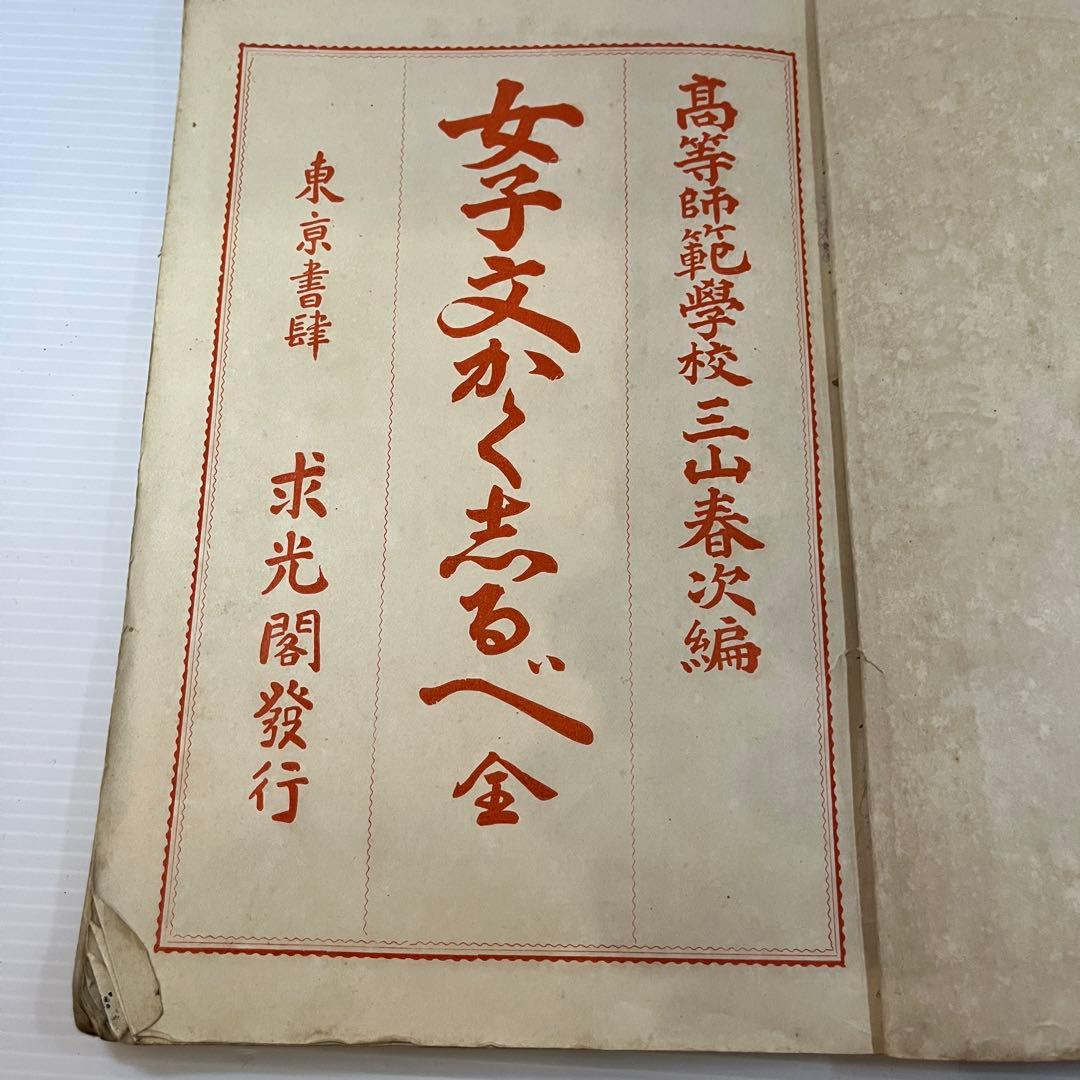 髙等師範學校三山春次編
女子文かく志るべ全
東京書肆 求光閣發行